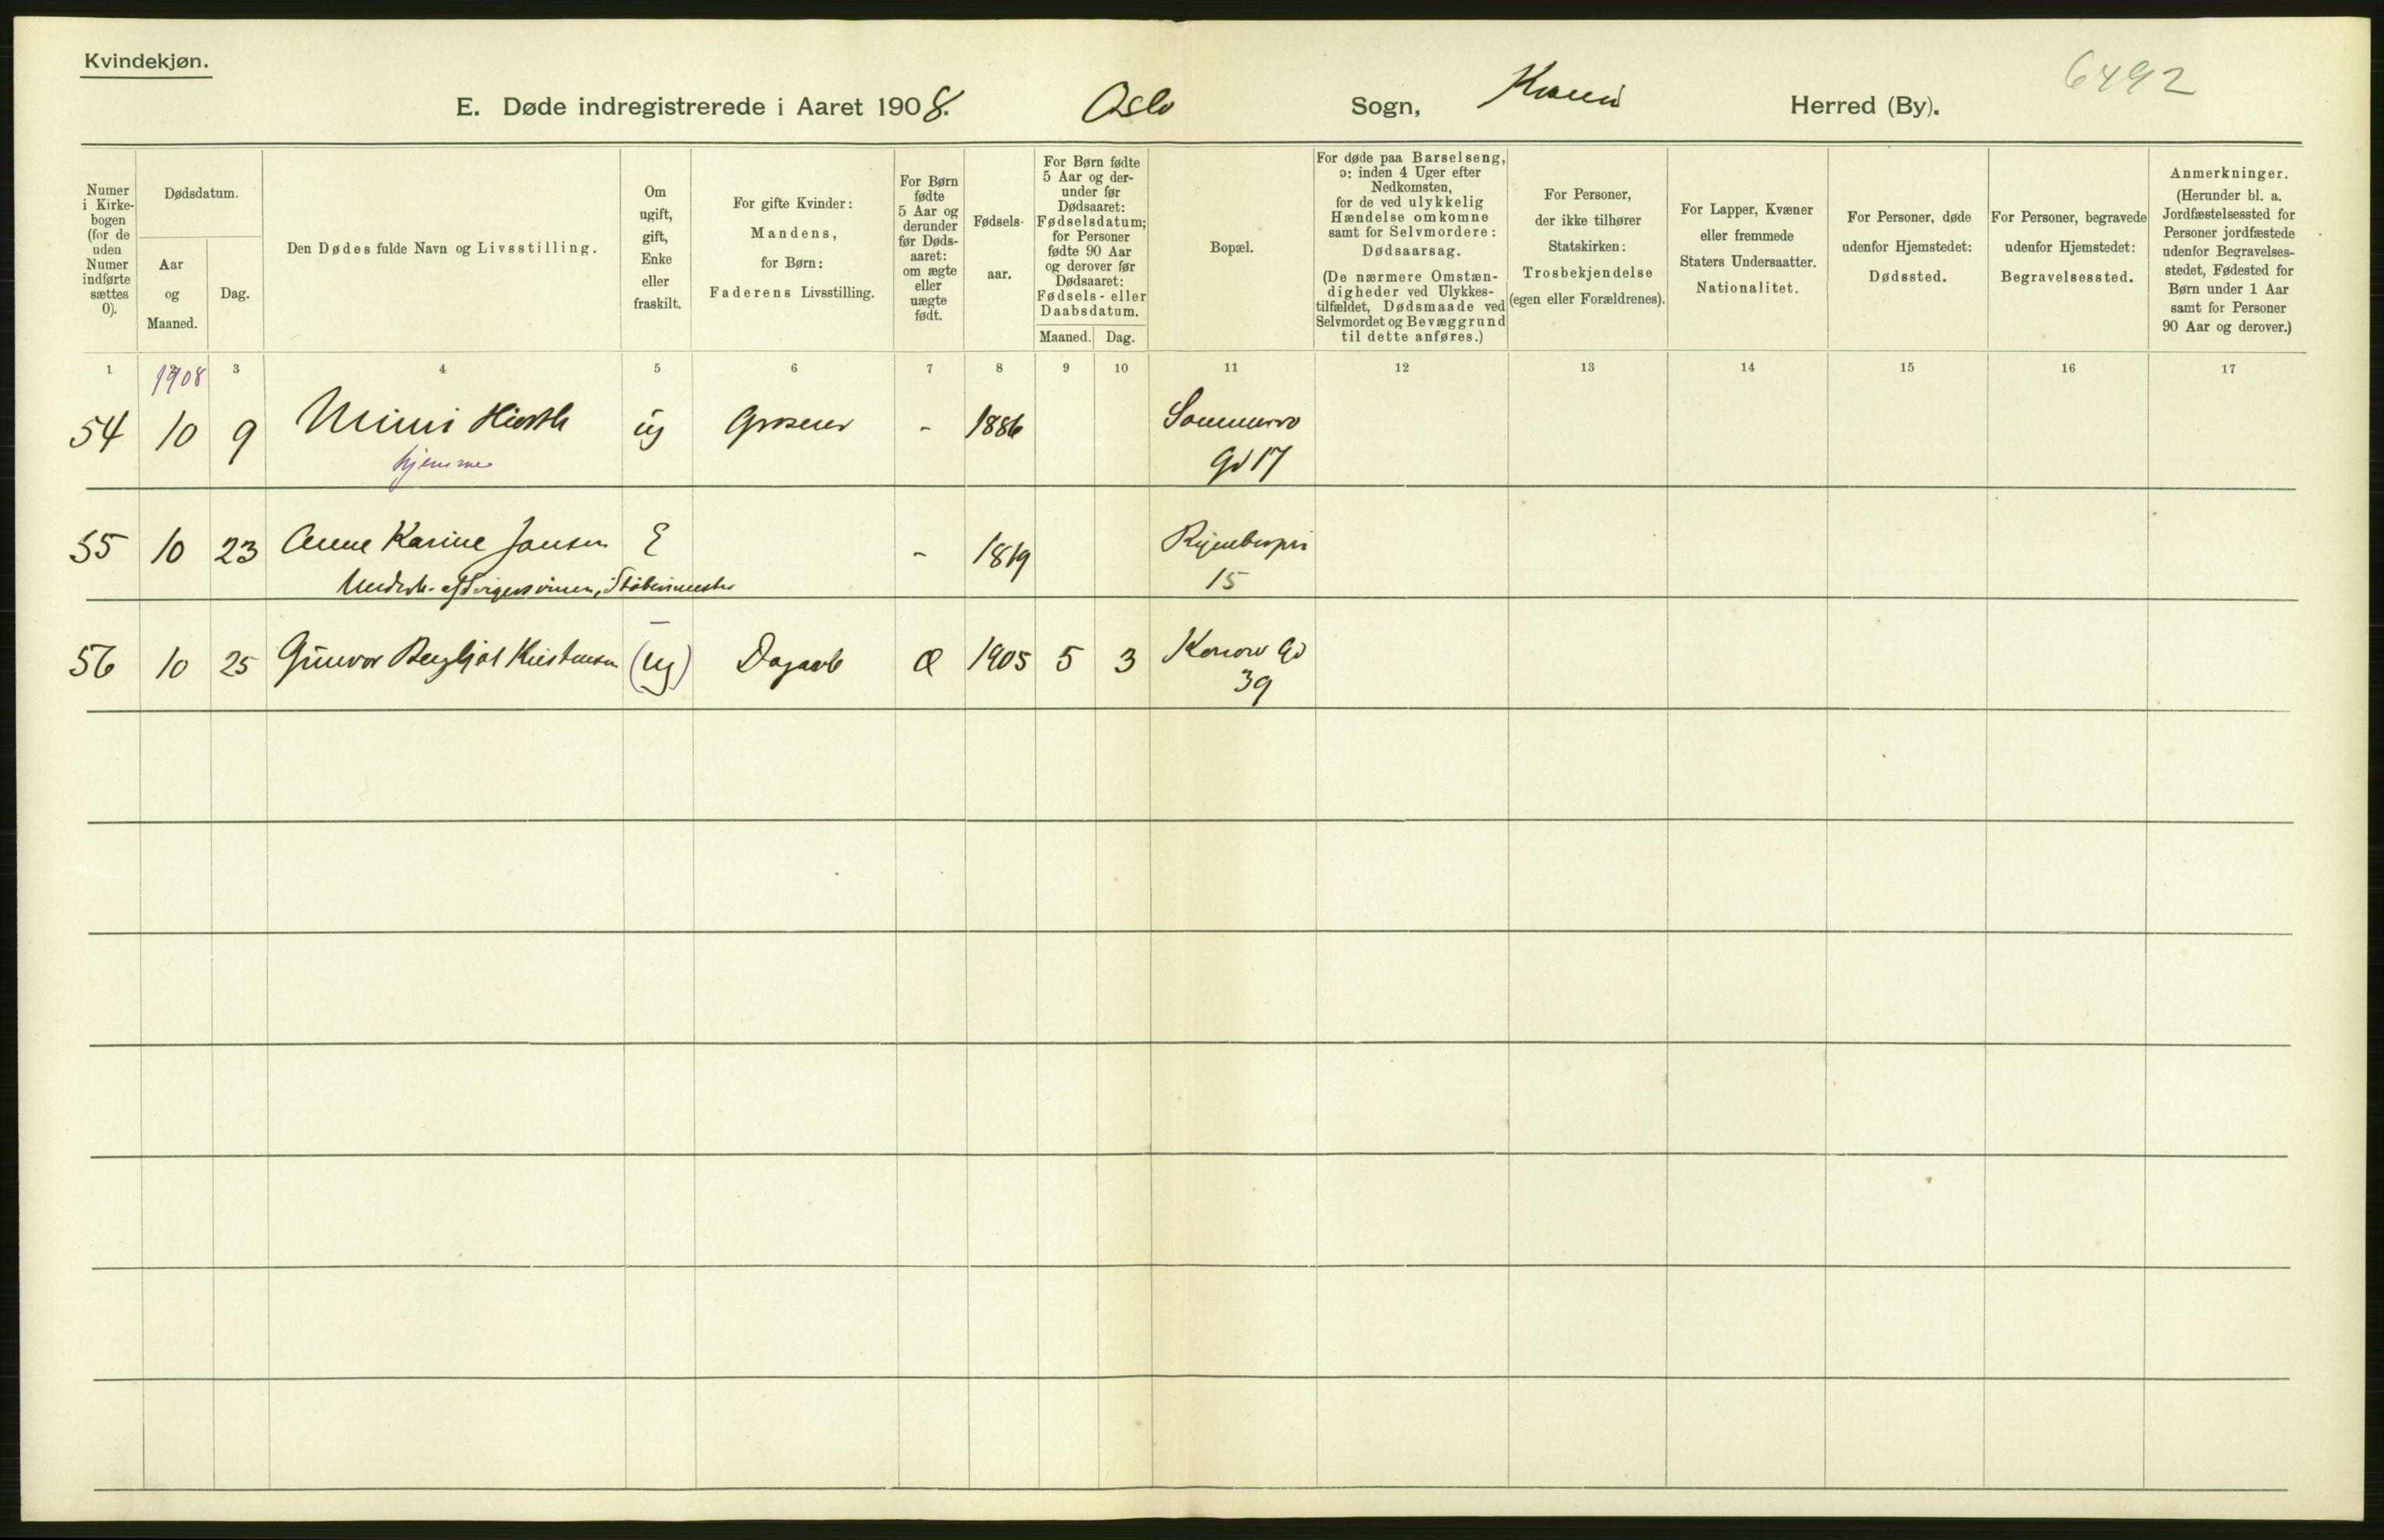 Kvindekjøn.
6492
E. Døde indregistrerede i Aaret 1908. Oslo Sogn, Herred (By).
Numer i Kirkebogen (for de uden Numer indførte sættes 0).
Dødsdatum.
Aar og Maaned.
Dag.
Den Dødes fulde Navn og Livsstilling.
Om ugift, gift, Enke eller fraskilt.
For gifte Kvinder: Mandens, for Børn: Faderens Livsstilling.
For Børn fødte 5 Aar og derunder før Dødsaaret: om ægte eller uægte født.
Fødselsaar.
For Børn fødte 5 Aar og derunder før Dødsaaret: Fødselsdatum; for Personer fødte 90 Aar og derover før Dødsaaret: Fødsels- eller Daabsdatum.
Maaned. Dag.
Bopæl.
For døde paa Barselseng, ɔ: inden 4 Uger efter Nedkomsten, for de ved ulykkelig Hændelse omkomne samt for Selvmordere: Dødsaarsag.
(De nærmere Omstændigheder ved Ulykkestilfældet, Dødsmaade ved Selvmordet og Bevæggrund til dette anføres.)
For Personer, der ikke tilhører Statskirken: Trosbekjendelse (egen eller Forældrenes).
For Lapper, Kvæner eller fremmede Staters Undersaatter. Nationalitet.
For Personer, døde udenfor Hjemstedet: Dødssted.
For Personer, begravede udenfor Hjemstedet: Begravelsessted.
Anmerkninger.
(Herunder bl. a. Jordfæstelsessted for Personer jordfæstede udenfor Begravelsesstedet, Fødested for Børn under 1 Aar samt for Personer 90 Aar og derover.)
1 2 3 4 5 6 7 8 9 10 11 12 13 14 15 16 17
1908
54 10 9 Mimi ug - 1886
hjemme Gd 17
55 10 23 Anne Karine Jansen E - 1819
15
56 10 25 Gunvor Bergljot Kristensen (ug) Dagarb Æ 1905 5 3 Konow Gd
39